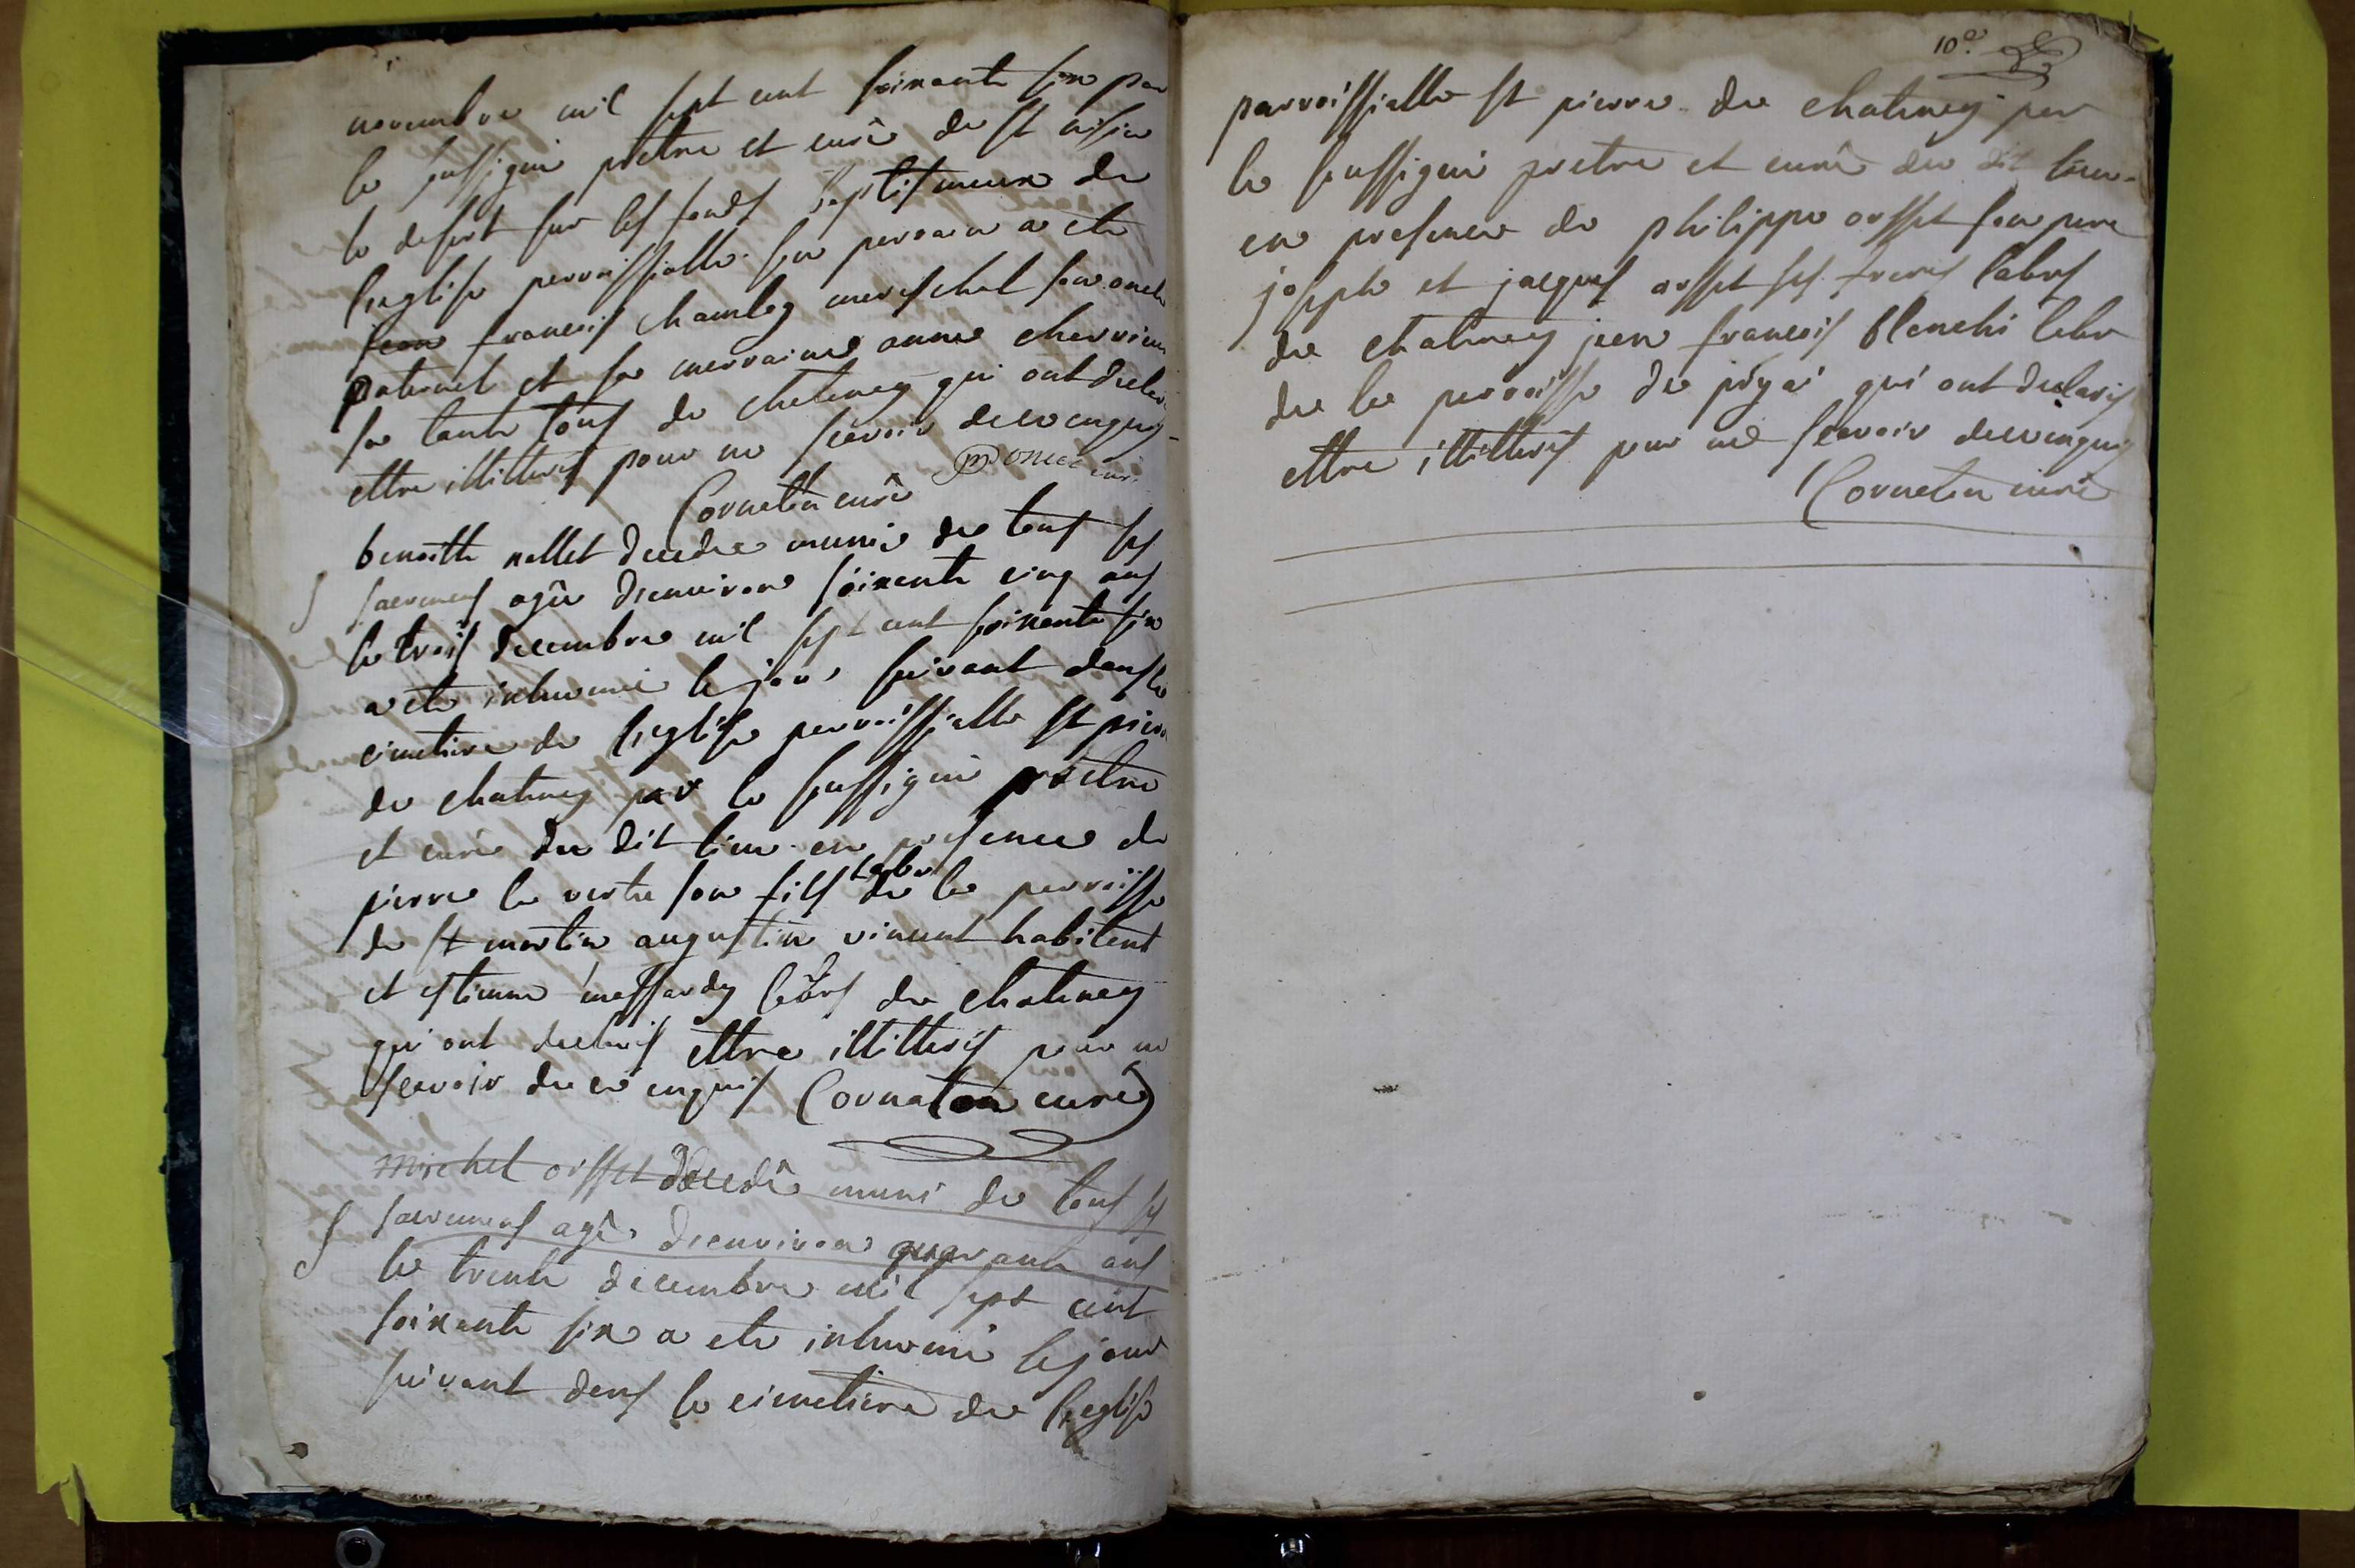 novembre mil sept cent soixante six par
le soussigné prêtre et curé de st
le desert sur les fonds baptismeux de
l'eglise perroissialle son perrain a ete
jean francois chamboz mareschal son oncle
paternel et sa merraine anne
sa tante tous de chatenay qui ont declaré
ettre illitterés pour ne sçavoir de ce enquis
Cornaton curé
benoitte nallet decedée munie de tous ses
sacremens agée denviron soixente cinq ans
le trois decembre mil sept cent soixente six
a ete inhumée le jour suivant dans le
cimetiere de l'eglise perroissialle st pierre
de chatenay par le soussigné prêtre
et curé du dit lieu en presence de
pierre la verte son fils labr de la perroisse
de st martin augustin vincent habitent
et estienne labrs de chatenay
qui ont declarés ettre illitterés pour ne
scavoir de ce enquis Cornaton curé
michel orsset decedé muni de tous ses
sacremens agé denviron quarante ans
le trente decembre mil sept cent
soixente six a ete inhumé le jour
suivant dens le cimetiere de l'eglise
10e
parroissialle st pierre de chatenay par
le soussigné prêtre et curé du dit lieu
en presence de philippe orsset son pere
joseph et jacques orsset ses freres labrs
de chatenay jean francois blenchi labr
de la perroisse de qui ont declarés
ettre illitterés pour ne scavoir de ce enquis
Cornaton curé